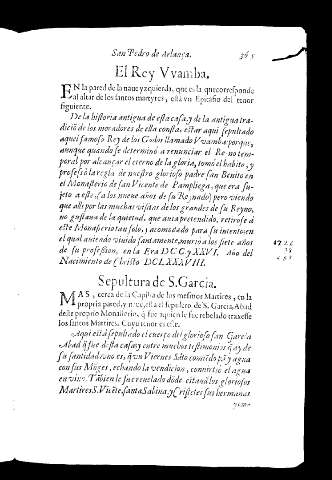 San Pedro de Arlança. 365
El Rey VVamba.
EN la pared de la naue yzquierda, que es la que corresponde
al altar de los santos martyres, esta vn Epitafio del tenor
siguiente.
De la historia antigua de esta casa, y de la antigua tra-
diciō de los moradores de ella consta: estar aqui sepultado
aquel famoso Rey de los Godos llamado VVamba porque,
aunque quando se determinó a renunciar el Reyno tem-
poral por alcançar el eterno de la gloria, tomó el habito, y
professó la regla de nuestro glorioso padre san Benito en
el Monasterio de san Vicente de Pampliega, que era su-
jeto a este, (a los nueue años de su Reynado) pero viendo
que alli por las muchas visitas de los grandes de su Reyno,
no gustaua de la quietud, que auia pretendido, retirose à
este Monasterio tan solo, y acomodado para su intento, en
el qual auiendo viuido santamente, murio a los siete años
de su profession, en la Era DCCXXVI. Año del
Nacimiento de Christo DCLXXXVIII.
Sepultura de S. Garcia.
MAS, cerca de la Capilla de los mesmos Martires, en la
propria pared, y naue, esta el sepulcro de S. Garcia, Abad
deste proprio Monasterio, a q̃ fue aquien fue rebelado traxesse
los santos Martires. Cuyo tenor es este.
Aqui està sepultado el cuerpo del glorioso san Garcia
Abad q̃ fue desta casa, y entre muchos testimonios q̃ ay de
su santidad vno es, q̃ vn Viernes Sāto comiēdo pā y agua
con sus Mōges, echando la vendicion, conuirtió el agua
en vino. Tābien le fue reuelado dōde estauā los gloriosos
Martires S. Vicēte, santa Sabina, y Cristetes sus hermanas